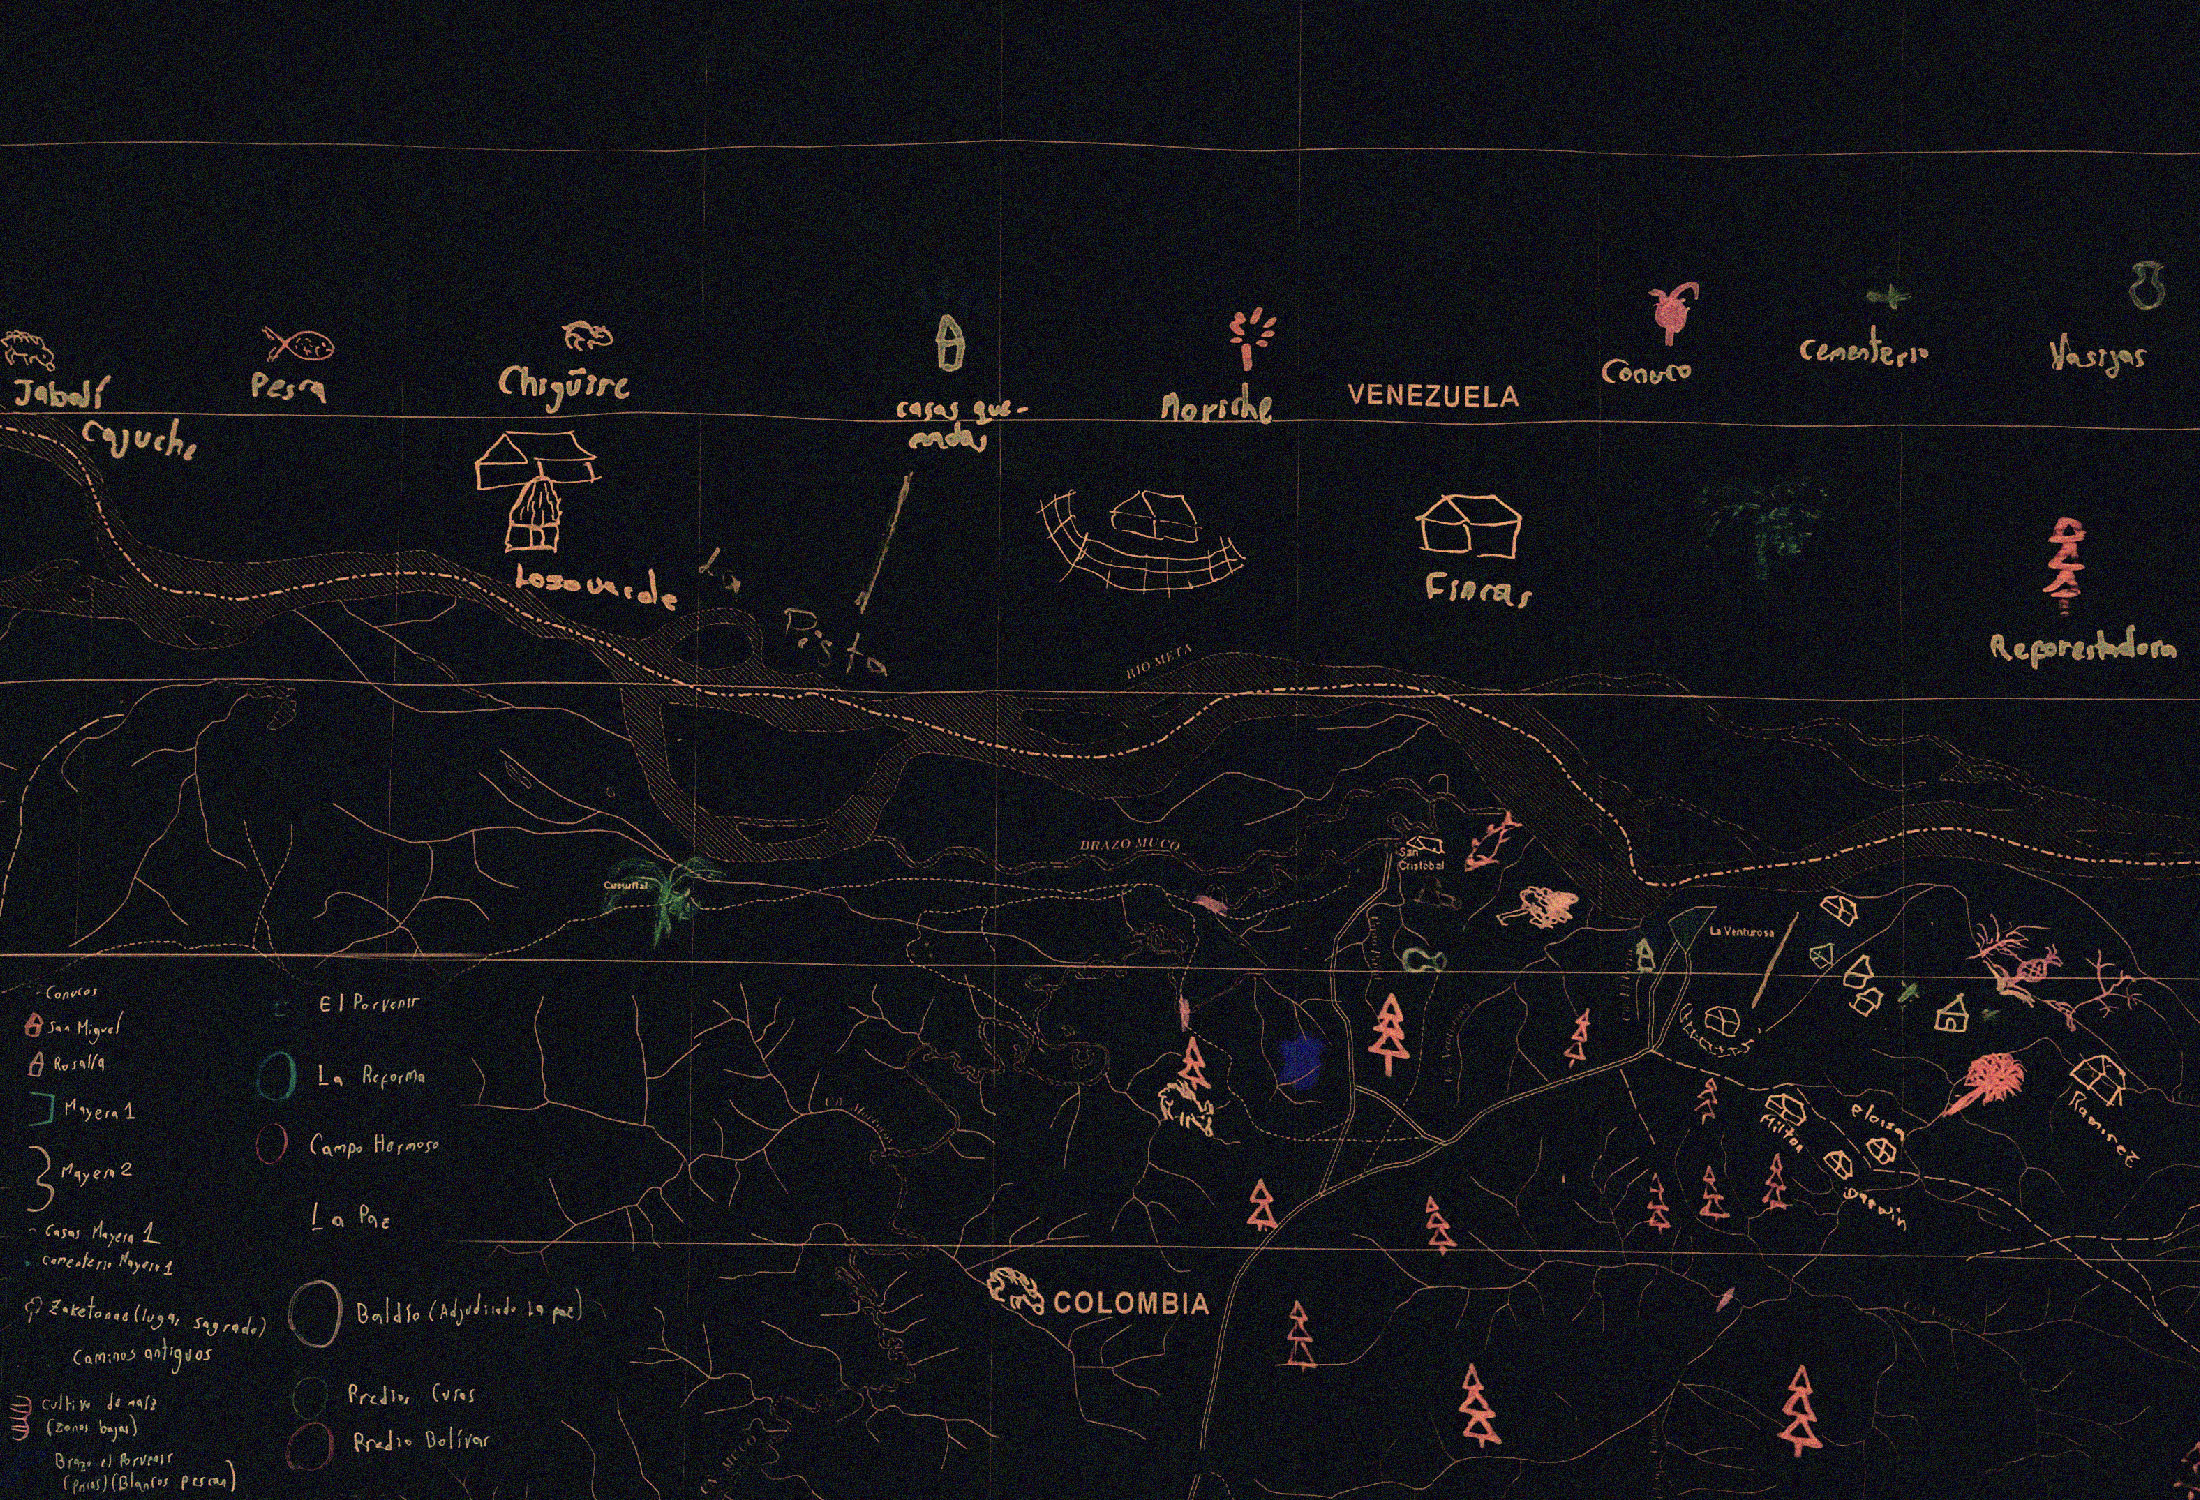 Jabalí
Cajuche
Pesca
Chigüire
casas que-
madas
Moriche
VENEZUELA
Conuco
Cementerio
Vasijas
La
Pista
Fincas
Reforestadora
RIO META
BRAZO MUCO
San
Cristobal
La Venturosa
Milton
eloisa
Darwin
Ramirez
COLOMBIA
Conucos
San Miguel
Rosalía
Mayera 1
Mayera 2
Casas Mayera 1
Cementerio Mayera 1
Zaketonas (lugar sagrado)
Caminos antiguos
Cultivo de maíz
(Zonas bajas)
Brazo el Porvenir
(Blancos pescan)
El Porvenir
La Reforma
Campo Hermoso
La Paz
Baldío (Adjudicado La paz)
Predios Curas
Predio Bolívar
CÑ. MUCO